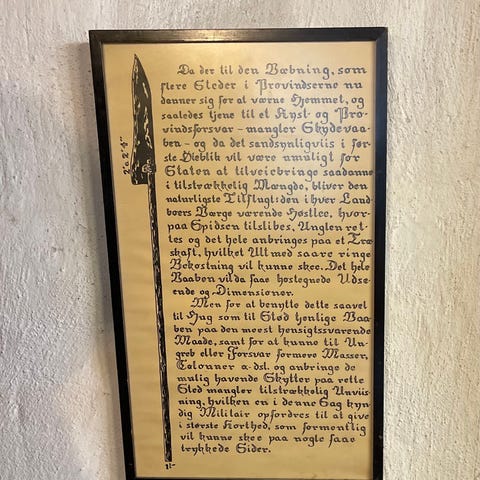 Da der til den Væbning, som
flere Steder i Provindserne nu
danner sig for at værne Hjemmet, og
saaledes tjene til et Kyst- og Pro-
vindsforsvar - mangler Skydevaa-
ben - og da det sandsynligviis i før-
ste Øieblik vil være umuligt for
Staten at tilveiebringe saadanne
i tilstrækkelig Mængde, bliver den
naturligste Tilflugt: den i hver Land-
boers Værge værende Høstlee, hvor-
paa Spidsen tilslibes, Vinglen ret-
tes og det hele anbringes paa et Træ-
skaft, hvilket Alt med saare ringe
Bekostning vil kunne skee. Det hele
Vaaben vil da faae hostegnede Udse-
ende og Dimensioner.
Men for at benytte dette saavel
til Hug som til Stød tjenlige Vaa-
ben paa den meest hensigtssvarende
Maade, samt for at kunne til An-
greb eller Forsvar formere Masser,
Colonner a. dsl. og anbringe de
mulig havende Skytter paa rette
Sted mangler tilstrækkelig Anviis-
ning, hvilken en i denne Sag kyn-
dig Militair opfordres til at give
i største Korthed, som formentlig
vil kunne skee paa nogle faae
trykkede Sider.